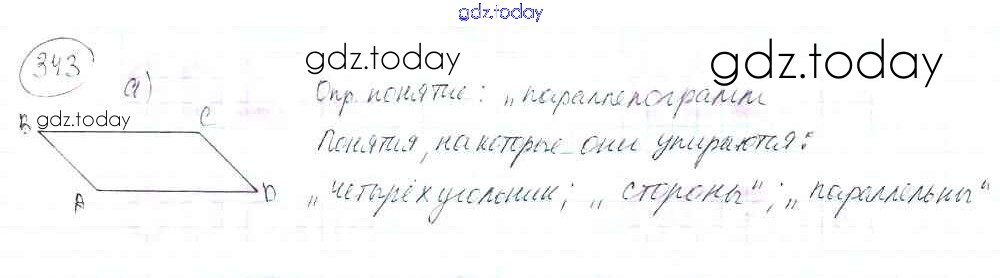 gdz.today
343
а)
gdz.today
gdz.today
Опр. понятие: „параллелограмм
B
gdz.today
C
Понятия, на которые они упираются:
A
D
„четырёхугольник; „стороны“; „параллельны“